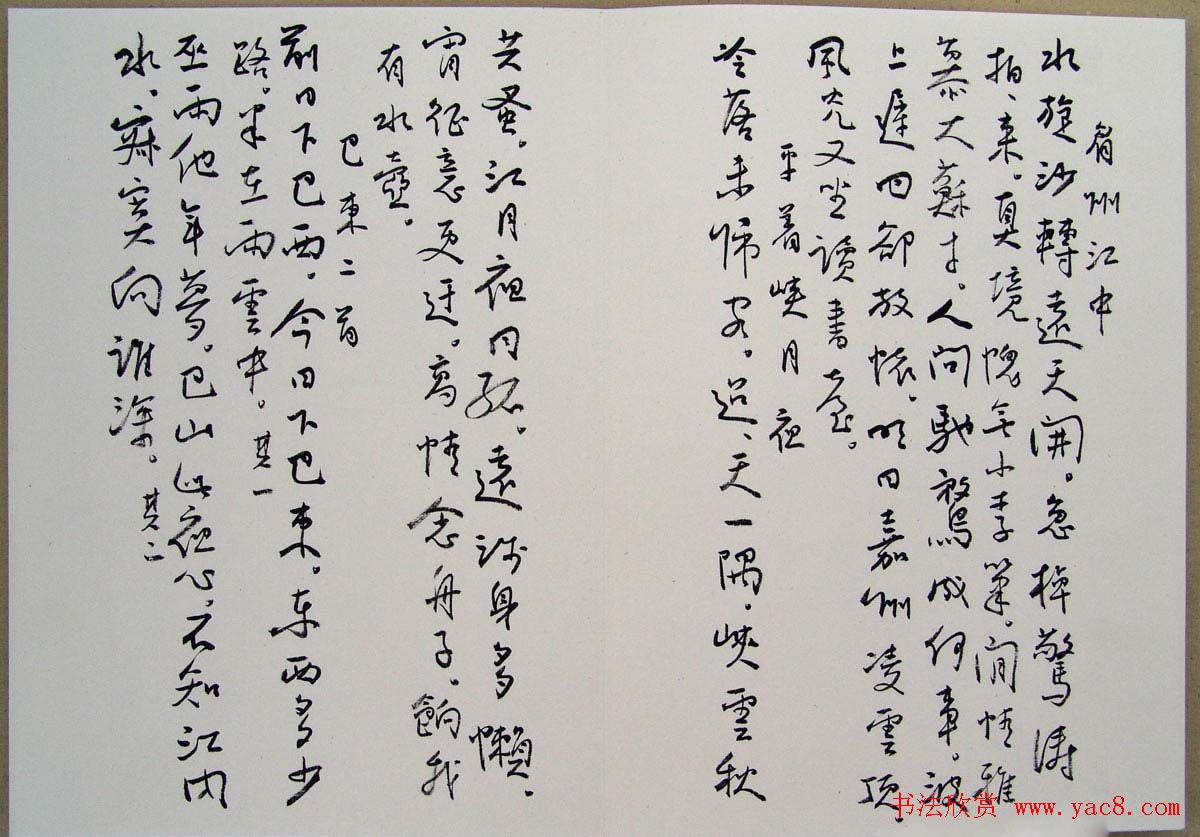 眉州江中
水旋沙轉遠天開。急棹驚濤
拍、来。真境愧無小李筆。閒情雅
慕大蘇才。人间馳騖成何事。波
上遲回却放懷。明日嘉州凌雲頂。
風光又坐讀書臺。
平羌峽月夜
冷落未歸客。迢、天一隅。峽雲秋
共蚤。江月夜同孤。遠涉身多懶。
宵征意更迂。高情念舟子。餉我
有冰壺。
巴東二首
前日下巴西。今日下巴東。东西多少
路。半在雨雲中。其一
巫雨他年夢。巴山此夜心。不知江内
水。寂寞向誰深。其二
书法欣赏 www.yac8.com